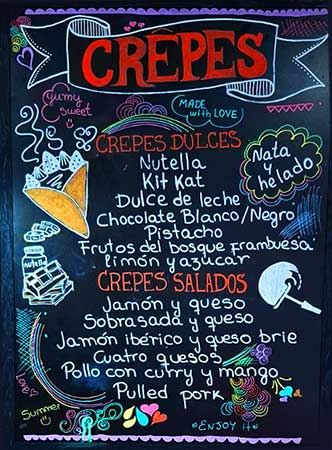 CRÊPES
yumy
sweet
MADE
with LOVE!
CREPES DULCES
Nutella
Kit Kat
Dulce de leche
Chocolate Blanco/Negro
Pistacho
Frutos del bosque frambuesa
limón y azúcar
Nata
y
helado
nutella
CREPES SALADOS
Jamón y queso
Sobrasada y queso
Jamón ibérico y queso brie
Cuatro quesos
Pollo con curry y mango
Pulled pork
Love
Summer
ENJOY it